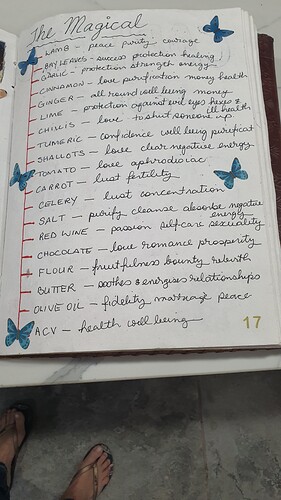 The Magical
LAMB - peace purity courage
BAY LEAVES - success protection healing
GARLIC - protection strength energy
CINNAMON - love purification money health
GINGER - all round well being money
LIME - protection against evil eyes hexes &
ill health
CHILLIS - love to shut someone up
TUMERIC - confidence well being purificat
SHALLOTS - love clear negative energy
TOMATO - love aphrodisiac
CARROT - lust fertility
CELERY - lust concentration
SALT - purify cleanse absorbe negative
energy
RED WINE - passion selfcare sexuality
CHOCOLATE - love romance prosperity
FLOUR - fruitfulness bounty rebirth
BUTTER - soothes & energises relationships
OLIVE OIL - fidelity marriage peace
ACV - health well being
17